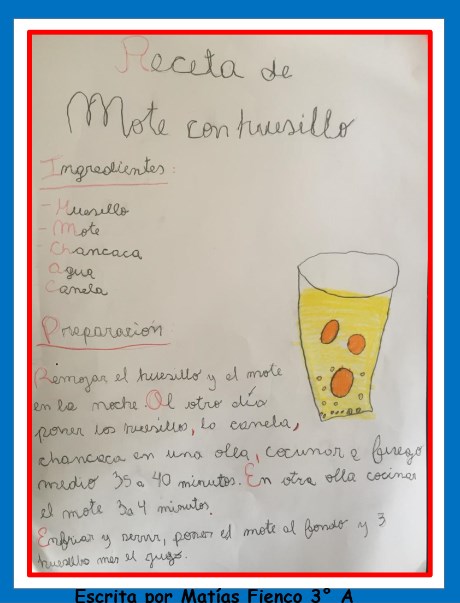 Receta de
Mote con huesillo
Ingredientes:
- Huesillo
- Mote
- Chancaca
- Agua
- Canela
Preparación:
Remojar el huesillo y el mote
en la noche. Al otro día
poner los huesillos, la canela,
chancaca en una olla, cocinar a fuego
medio 35 a 40 minutos. En otra olla cocinar
el mote 3 a 4 minutos.
Enfriar y servir, poner el mote al fondo y 3
huesillo mas el jugo.
Escrita por Matías Fienco 3° A